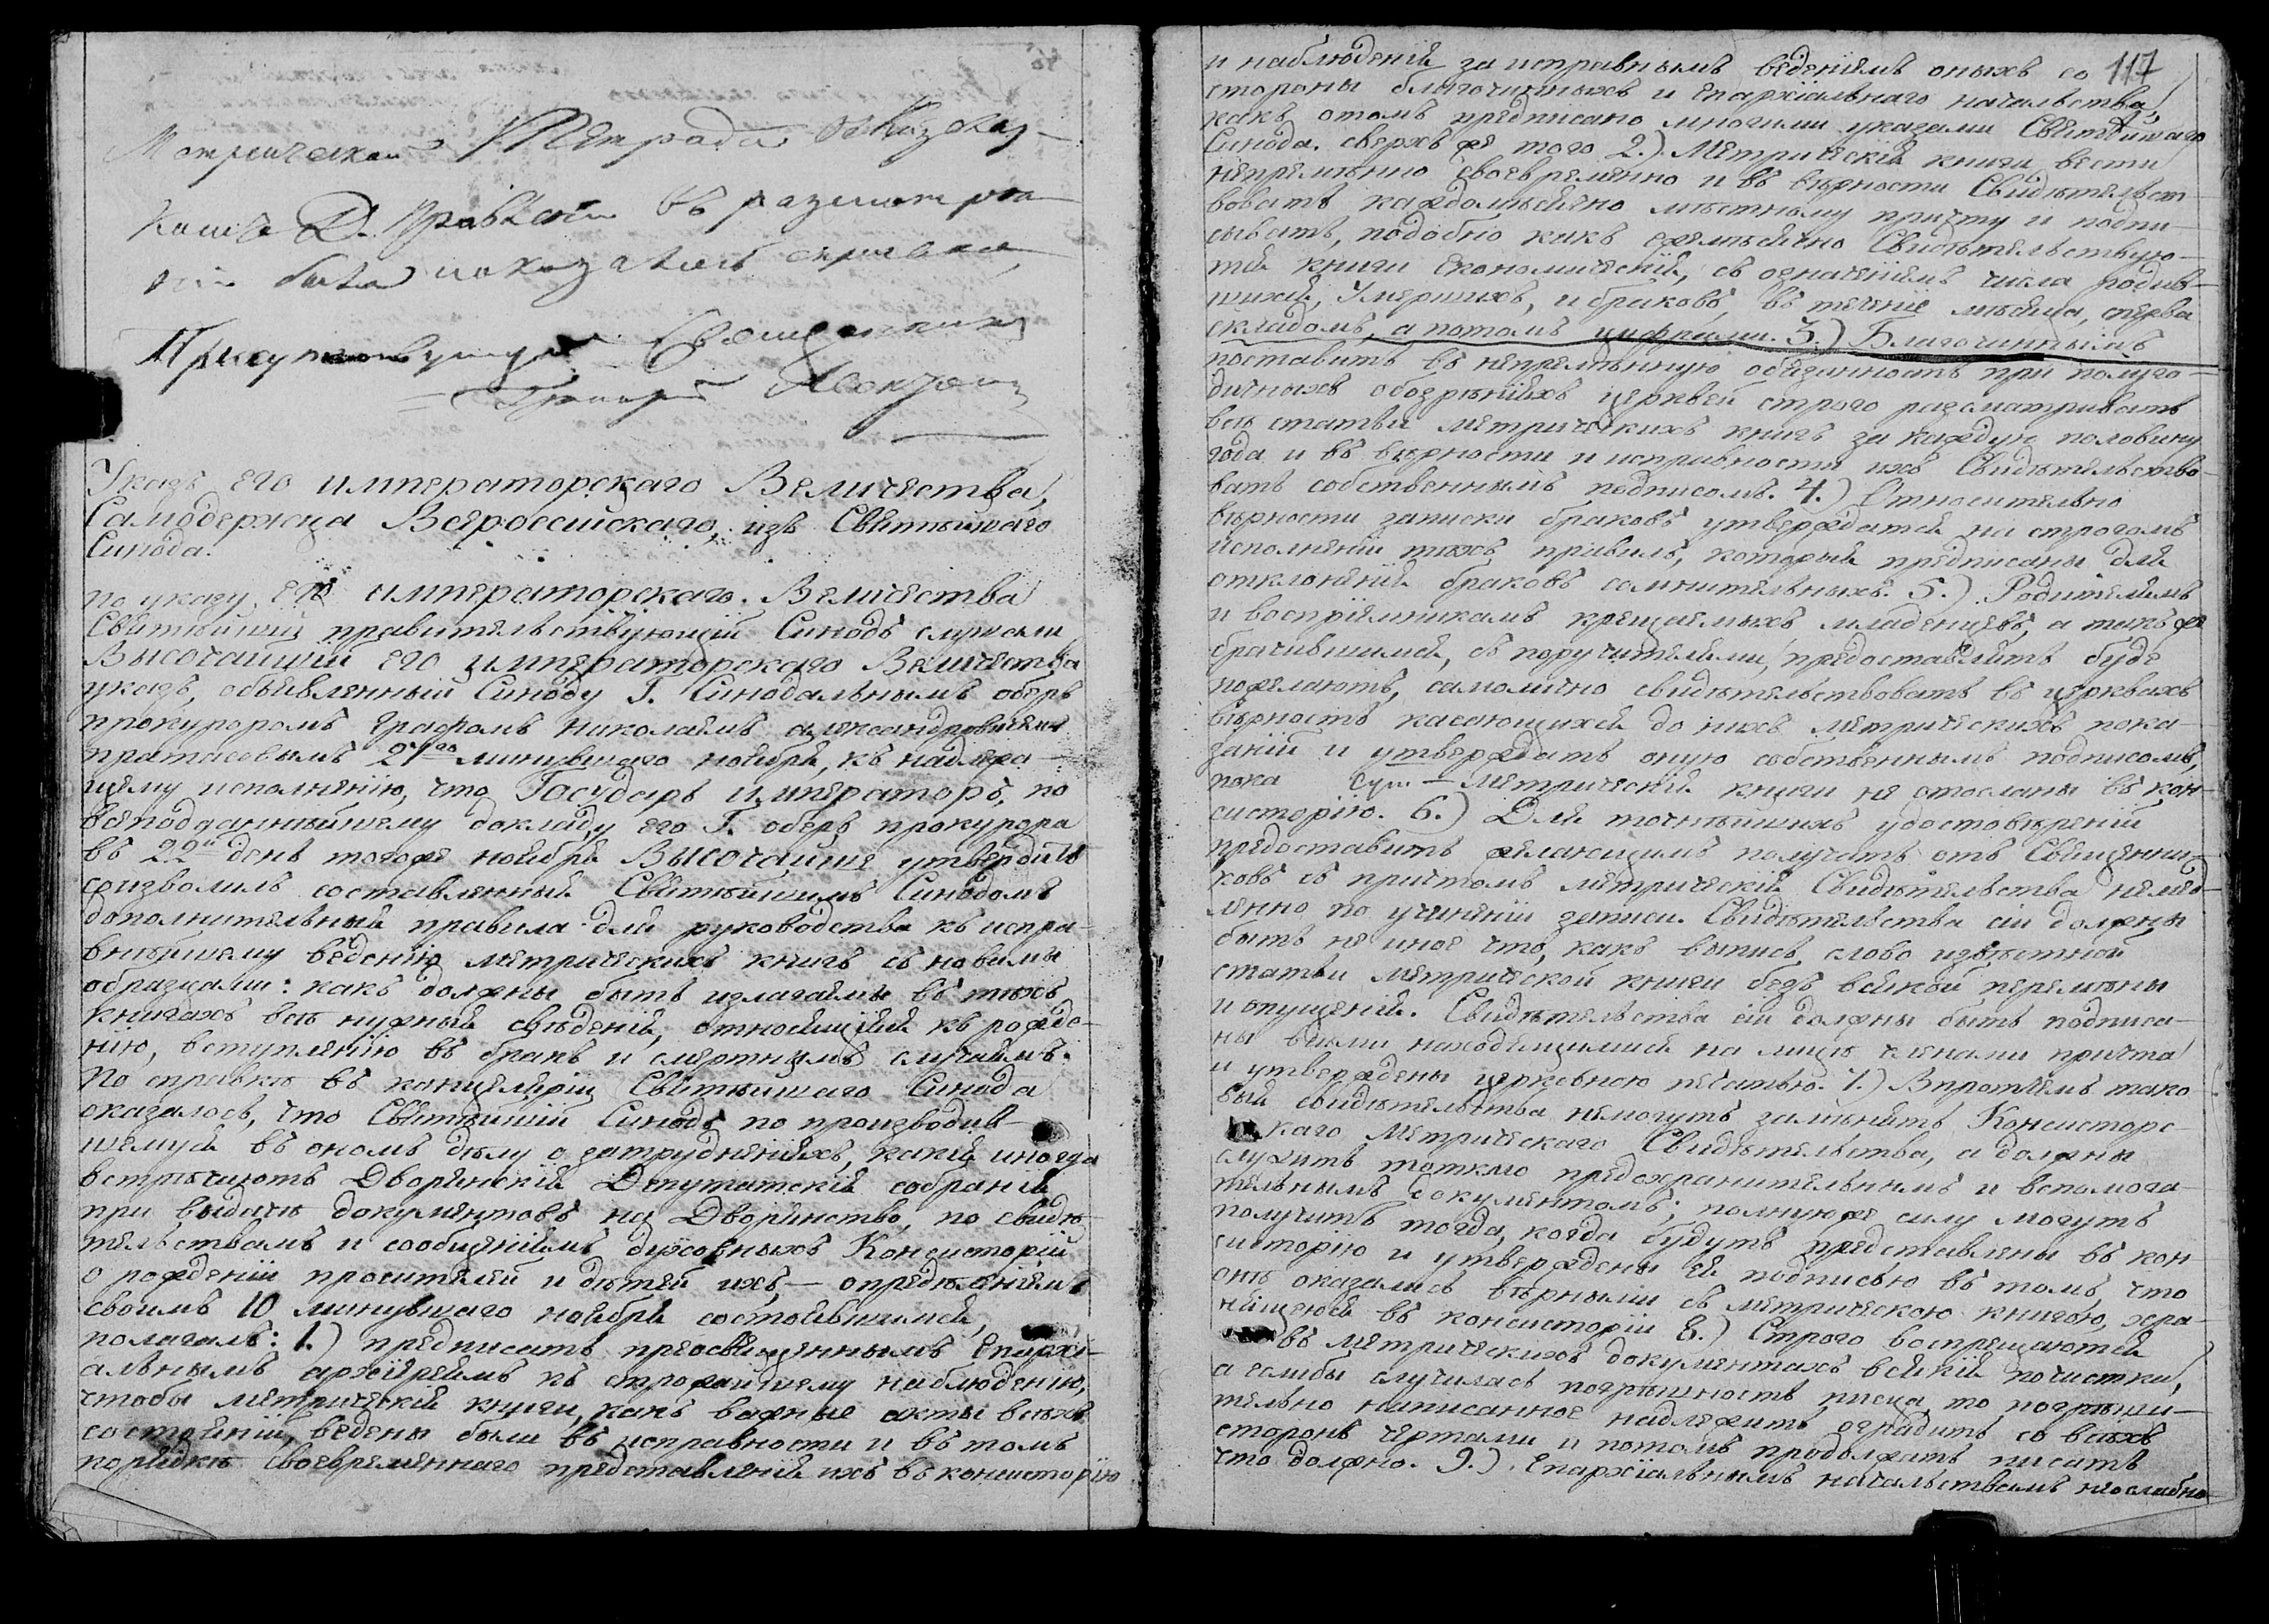 Метрическая Тетрадь
въ разсмотре
была
Присутствующій Священникъ
Указъ его императорскаго Величества,
Самодержца Всероссійскаго, изъ Святѣйшаго
Синода.
по указу его императорскаго Величества
Святѣйшій правительствующій Синодъ слушали
Высочайшій его императорскаго Величества
указъ, объявленный Синоду Г. Синодальнымъ оберъ
прокуроромъ Графомъ николаемъ александровичемъ
пратасовымъ 27го минувшаго ноября, къ надлежа-
щему исполненію, что Государь императоръ, по
всеподданнѣйшему докладу его Г. оберъ прокурора
въ 22й день тогоже ноября Высочайше утвердить
соизволилъ составленныя Святѣйшимъ Синодомъ
дополнительныя правила для руководства къ испра-
внѣйшему веденію метрическихъ книгъ съ новыми
образцами: какъ должны быть излагаемы въ тѣхъ
книгахъ всѣ нужныя свѣденія, относящіяся къ рожде-
нію, вступленію въ бракъ и смертнымъ случаямъ.
По справкѣ въ канцеляріи Святѣйшаго Синода
оказалось, что Святѣйшій Синодъ по производив-
шемуся въ ономъ дѣлу о затрудненіяхъ, какія иногда
встрѣчаютъ Дворянскія Депутатскія собранія
при выдачѣ документовъ на Дворянство, по свидѣ-
тельствамъ и сообщеніямъ духовныхъ Консисторій
о рожденіи просителей и дѣтей ихъ, — опредѣленіемъ
своимъ 10 минувшаго ноября состоявшимся,
полагалъ: 1.) предписать преосвященнымъ Епархі-
альнымъ архіереямъ къ строжайшему наблюденію,
чтобы метрическія книги, какъ важные акты всѣхъ
состояній, ведены были въ исправности и въ томъ
порядкѣ своевременнаго представленія ихъ въ консисторію
117
и наблюденія за исправнымъ веденіемъ оныхъ со
стороны благочинныхъ и Епархіальнаго начальства,
какъ отомъ предписано многими указами Святѣйшаго
Синода. сверхъ же того 2.) Метрическія книги вести
непремѣнно своевременно и въ вѣрности Свидѣтельст-
вовать каждомѣсячно мѣстному причту и подпи-
сывать, подобно какъ ежемѣсячно Свидѣтельствую-
тся книги Економическія, съ означеніемъ числа родив-
шихся, Умершихъ, и браковъ, въ теченіе мѣсяца, сперва
складомъ, а потомъ цифрами. 3.) Благочиннымъ
поставить въ непремѣнную обязанность при полуго-
дичныхъ обозрѣніяхъ церквей строго разсматривать
всѣ статьи метрическихъ книгъ за каждую половину
года и въ вѣрности и исправности ихъ Свидѣтельство-
вать собственнымъ подписомъ. 4.) Относительно
вѣрности записки браковъ утверждатся на строгомъ
исполненіи тѣхъ правилъ, которыя предписаны для
отклоненія браковъ сомнительныхъ. 5.) Родителямъ
и воспріемникамъ крещаемыхъ младенцевъ, а также
брачившимся, съ поручителями, предоставлять буде
пожелаютъ, самолично свидѣтельствовать въ церквахъ
вѣрность касающихся до нихъ метрическихъ пока-
заній и утверждать оную собственнымъ подписомъ,
пока метрическія книги не отосланы въ кон-
систорію. 6.) Для точнѣйшихъ удостовѣреній
предоставить желающимъ получать отъ Священни-
ковъ съ причтомъ метрическія Свидѣтельства немед-
ленно по учиненіи записи. Свидѣтельства сіи должны
быть не иное что, какъ выпись слово извѣстной
статьи метрической книги безъ всякой перемѣны
и опущенія. Свидѣтельства сіи должны быть подписа-
ны всѣми находящимися на лицѣ членами причта
и утверждены церковною печатью. 7.) Впротчемъ тако
выя свидѣтельства немогутъ замѣнять Консисторс-
каго Метрическаго Свидѣтельства, а должны
служить токмо предохранительнымъ и вспомога-
тельнымъ документомъ; полную же силу могутъ
получить тогда, когда будутъ представлены въ кон
систорію и утверждены ея подписью въ томъ, что
онѣ оказались вѣрными съ метрическою книгою, хра-
нящеюся въ консисторіи 8.) Строго воспрещаются
въ метрическихъ документахъ всякія почистки,
а еслибы случилась погрѣшность писца, то погрѣши-
тельно написанное надлежитъ оградить со всѣхъ
сторонъ чертами и потомъ продолжать писать
что должно. 9.) Епархіальнымъ начальствамъ неослабно